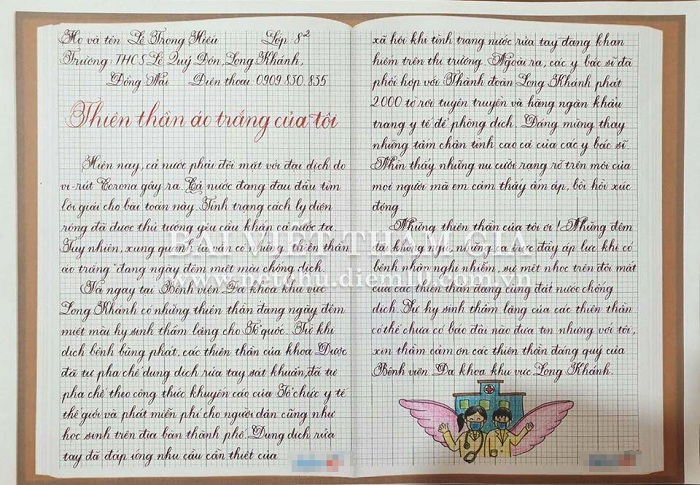 Họ và tên: Lê Trọng Hiếu Lớp 8²
Trường THCS Lê Quý Đôn, Long Khánh,
Đồng Nai Điện thoại 0909.850.855
Thiên thần áo trắng của tôi
Hiện nay, cả nước phải đối mặt với đại dịch do
vi-rút Corona gây ra. Cả nước đang đau đầu tìm
lời giải cho bài toán này. Tình trạng cách ly diện
rộng đã được thủ tướng yêu cầu khắp cả nước ta.
Tuy nhiên, xung quanh ta vẫn có những "thiên thần
áo trắng" đang ngày đêm miệt mài chống dịch.
Tá ngay tại Bệnh viện Đa khoa khu vực
Long Khánh có những thiên thần đang ngày đêm
miệt mài hy sinh thầm lặng cho Tổ quốc. Từ khi
dịch bệnh bùng phát, các thiên thần của khoa Dược
đã tự pha chế dung dịch rửa tay sát khuẩn, đã tự
pha chế theo công thức khuyến cáo của Tổ chức y tế
thế giới và phát miễn phí cho người dân cũng như
học sinh trên địa bàn thành phố. Dung dịch rửa
tay đã đáp ứng nhu cầu cần thiết của
xã hội khi tình trạng nước rửa tay đang khan
hiếm trên thị trường. Ngoài ra, các y bác sĩ đã
phối hợp với Thành đoàn Long Khánh phát
2000 tờ rơi tuyên truyền và hàng ngàn khẩu
trang y tế để phòng dịch. Đáng mừng thay
những tấm chân tình cao cả của các y bác sĩ.
Nhìn thấy những nụ cười rạng rỡ trên môi của
mọi người mà em cảm thấy ấm áp, bồi hồi xúc
động.
Những thiên thần của tôi ơi! Những đêm
dài không ngủ, những ca trực đầy áp lực khi có
bệnh nhân nghi nhiễm, sự mệt nhọc trên đôi mắt
của các thiên thần đang cùng đất nước chống
dịch. Sự hy sinh thầm lặng của các thiên thần
có thể chưa có báo đài nào đưa tin nhưng với tôi,
xin thầm cảm ơn các thiên thần đáng quý của
Bệnh viện Đa khoa khu vực Long Khánh.
BÀI VIẾT THAM GIA
www.netchu.diem10.com.vn